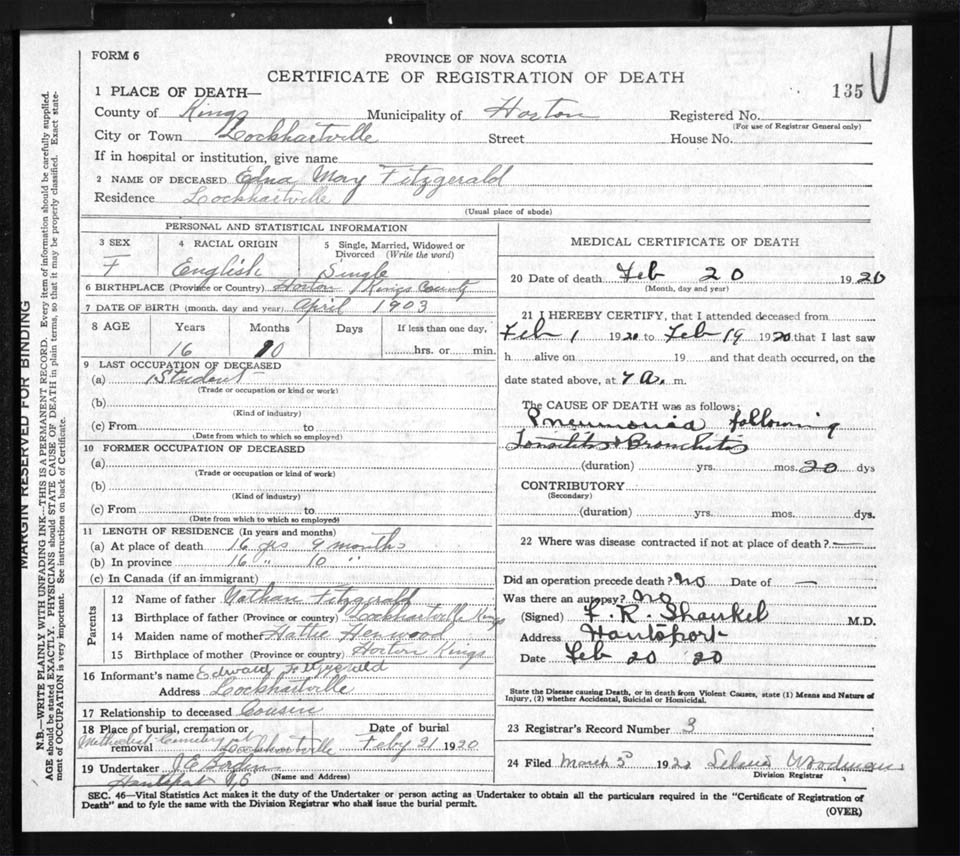 FORM 6
PROVINCE OF NOVA SCOTIA
CERTIFICATE OF REGISTRATION OF DEATH
135
1 PLACE OF DEATH—
County of Kings Municipality of Horton Registered No.
(For use of Registrar General only)
City or Town Lockhartville Street House No.
If in hospital or institution, give name
2 NAME OF DECEASED Edna May Fitzgerald
Residence Lockhartville
(Usual place of abode)
PERSONAL AND STATISTICAL INFORMATION
3 SEX
F
4 RACIAL ORIGIN
English
5 Single, Married, Widowed or
Divorced (Write the word)
Single
6 BIRTHPLACE (Province or Country) Horton Kings County
7 DATE OF BIRTH (month, day and year) April 1903
8 AGE Years Months Days If less than one day,
16 10 hrs. or min.
9 LAST OCCUPATION OF DECEASED
(a) Student
(Trade or occupation or kind or work)
(b)
(Kind of industry)
(c) From to
(Date from which to which so employed)
10 FORMER OCCUPATION OF DECEASED
(a)
(Trade or occupation or kind of work)
(b)
(Kind of industry)
(c) From to
(Date from which to which so employed)
11 LENGTH OF RESIDENCE (In years and months)
(a) At place of death 16 yrs 9 months
(b) In province 16 " 10 "
(c) In Canada (if an immigrant)
Parents
12 Name of father Nathan Fitzgerald
13 Birthplace of father (Province or country) Lockhartville Kings
14 Maiden name of mother Hattie Henwood
15 Birthplace of mother (Province or country) Horton Kings
16 Informant's name Edward Fitzgerald
Address Lockhartville
17 Relationship to deceased Cousin
18 Place of burial, cremation or Date of burial
removal Methodist Cemetery Lockhartville Feby 21 1920
19 Undertaker J E
(Name and Address)
Hantsport N S
MEDICAL CERTIFICATE OF DEATH
20 Date of death Feb 20 1920
(Month, day and year)
21 I HEREBY CERTIFY, that I attended deceased from
Feb 1 1920 to Feb 19 1920 that I last saw
h alive on 19 and that death occurred, on the
date stated above, at 7 A. m.
The CAUSE OF DEATH was as follows:
Pneumonia following
Tonsilitis & Bronchitis
(duration) yrs. mos. 20 dys
CONTRIBUTORY
(Secondary)
(duration) yrs. mos. dys.
22 Where was disease contracted if not at place of death? —
Did an operation precede death? No Date of —
Was there an autopsy? No
(Signed) F. R. Shankel M.D.
Address Hantsport
Date Feb 20 '20
State the Disease causing Death, or in death from Violent Causes, state (1) Means and Nature of
Injury, (2) whether Accidental, Suicidal or Homicidal.
23 Registrar's Record Number 3
24 Filed March 5 1920 Woodman
Division Registrar
SEC. 46—Vital Statistics Act makes it the duty of the Undertaker or person acting as Undertaker to obtain all the particulars required in the "Certificate of Registration of
Death" and to fyle the same with the Division Registrar who shall issue the burial permit.
(OVER)
MARGIN RESERVED FOR BINDING
N.B.—WRITE PLAINLY WITH UNFADING INK—THIS IS A PERMANENT RECORD. Every item of information should be carefully supplied.
AGE should be stated EXACTLY. PHYSICIANS should STATE CAUSE OF DEATH in plain terms, so that it may be properly classified. Exact state-
ment of OCCUPATION is very important. See instructions on back of Certificate.